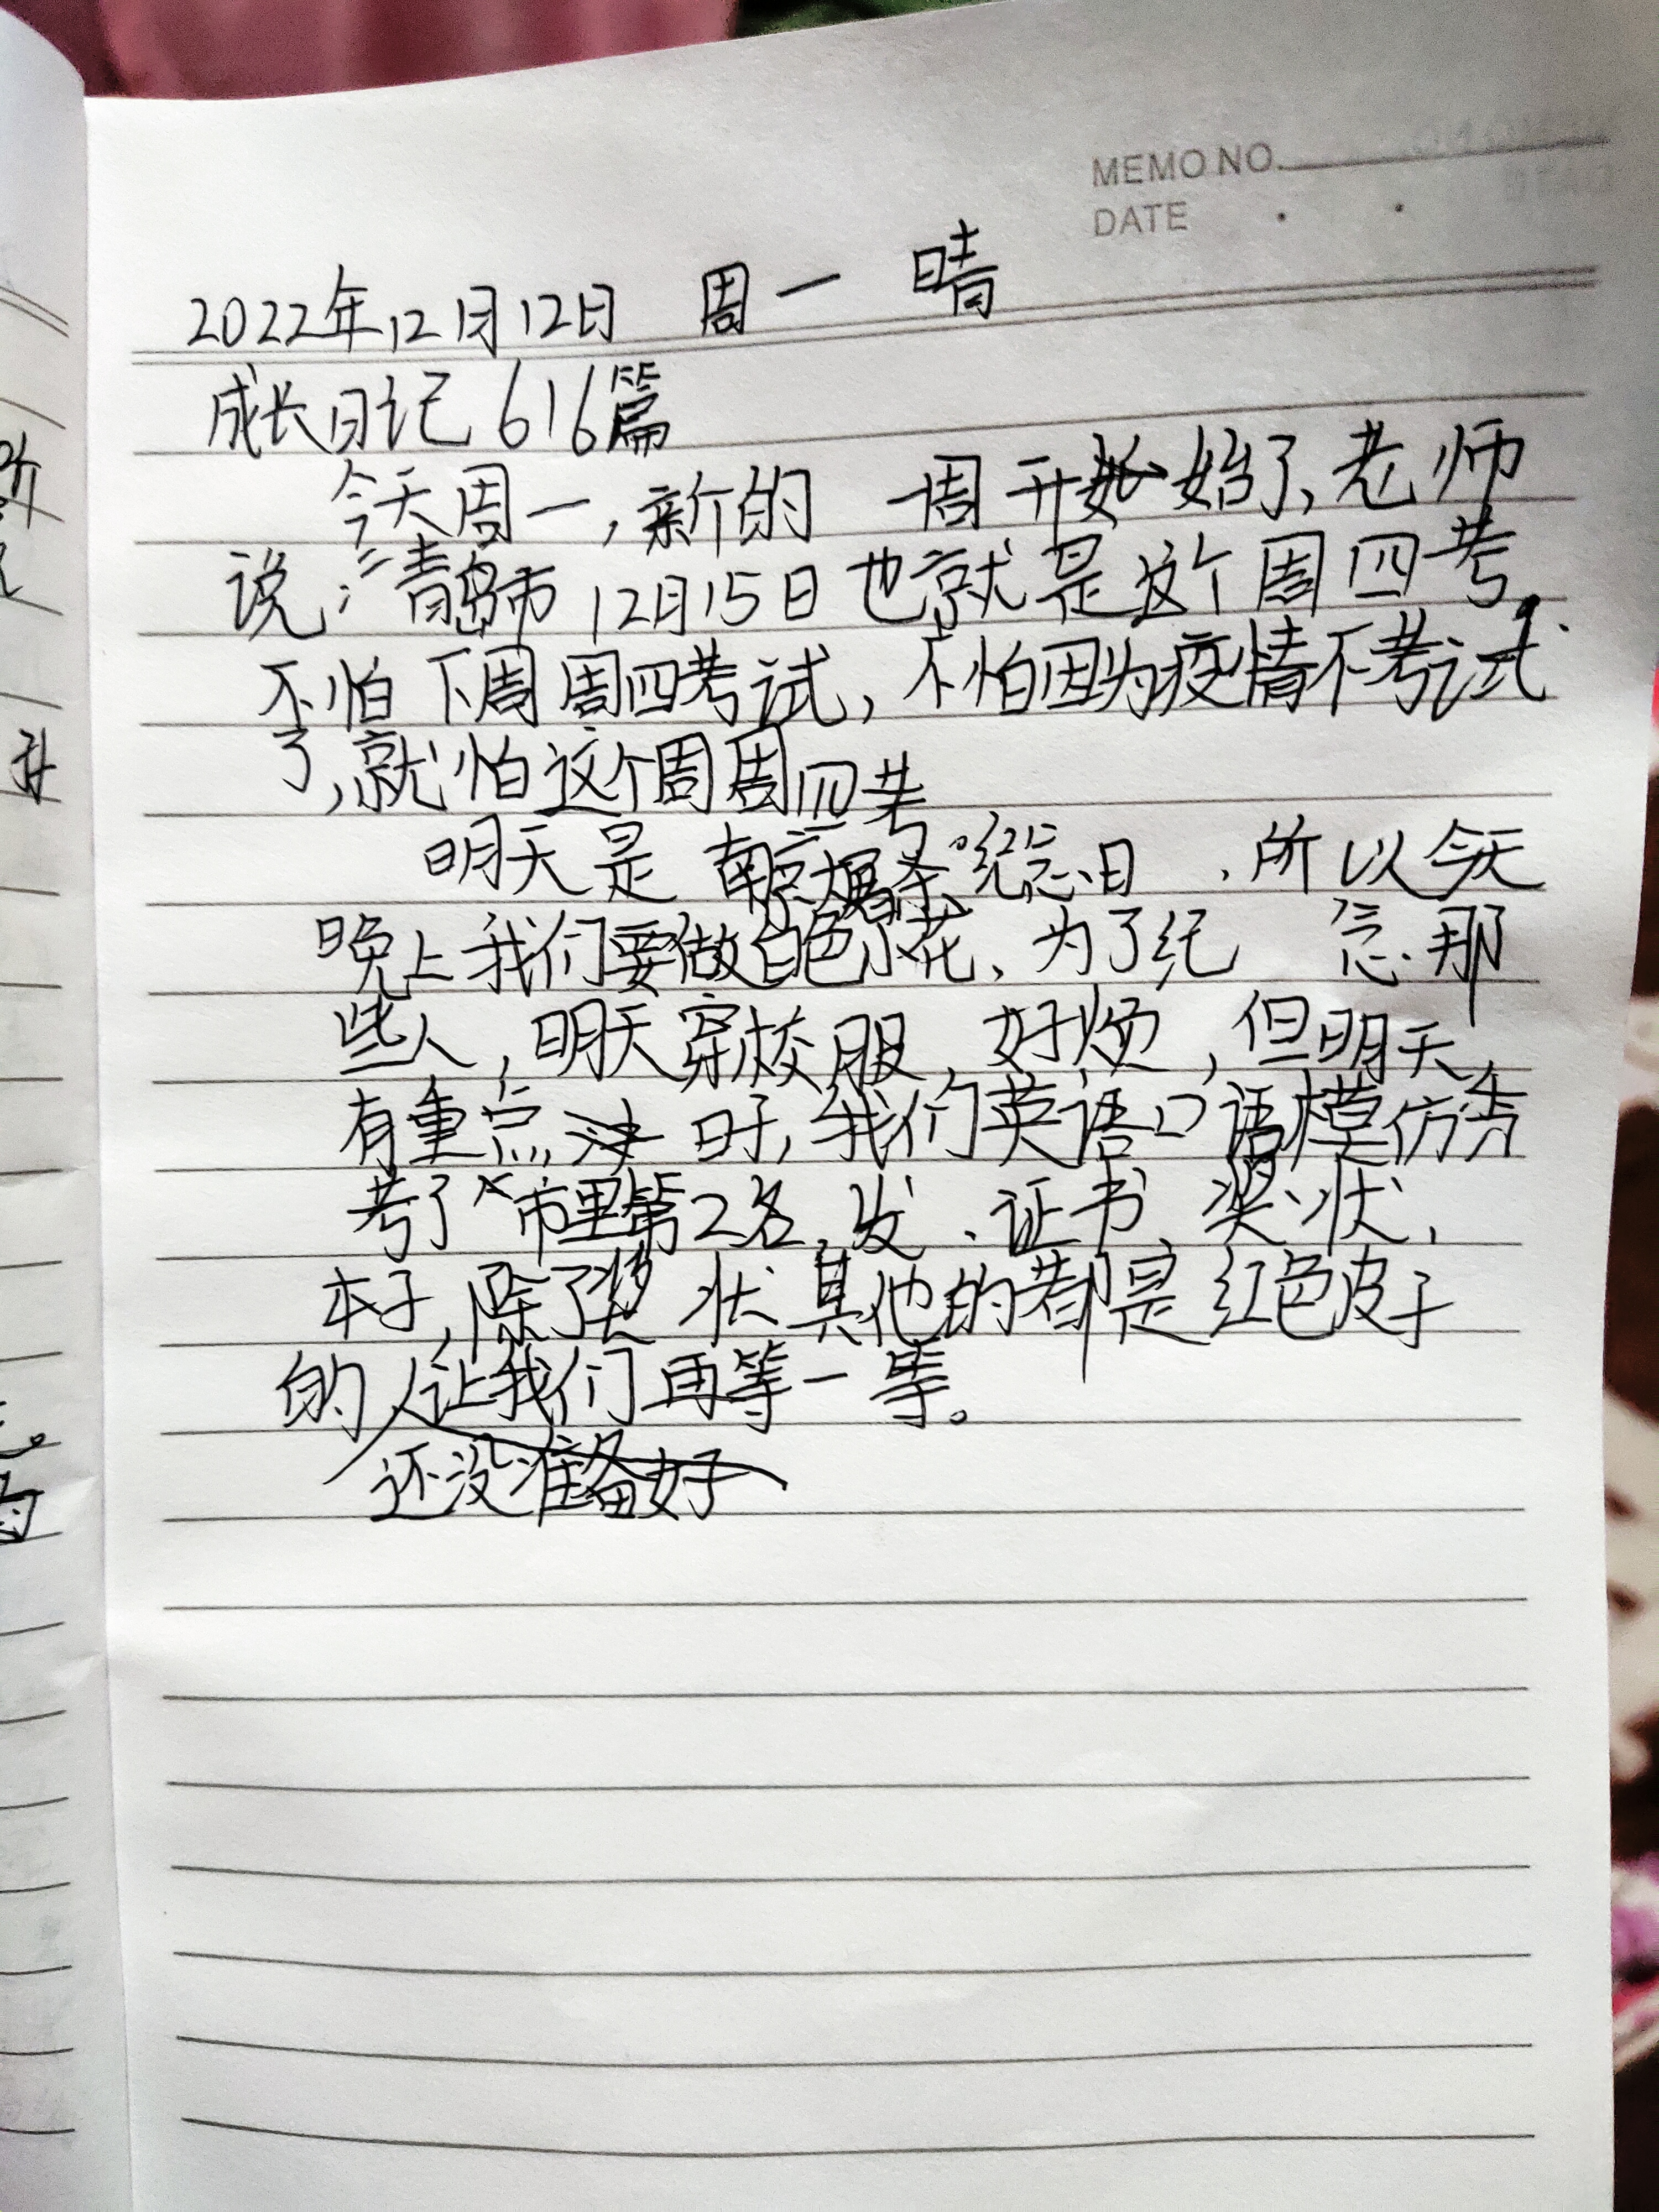 MEMO NO.
DATE
2022年12月12日 周一 晴
成长日记616篇
今天周一,新的 一周开始了,老师
说:青岛市12月15日也就是这个周四考,
不怕下周周四考试,不怕因为疫情不考试
了,就怕这个周周四考
明天是南京大屠杀纪念日,所以今天
晚上我们要做白色小花,为了纪念那
些人,明天穿校服,好烦,但明天
有重点 时,我们英语口语模仿秀
考了市里第2名,发、证书、奖状,
本子,除了奖状其他的都是红色皮子
的,让我们再等一等。
还没准备好